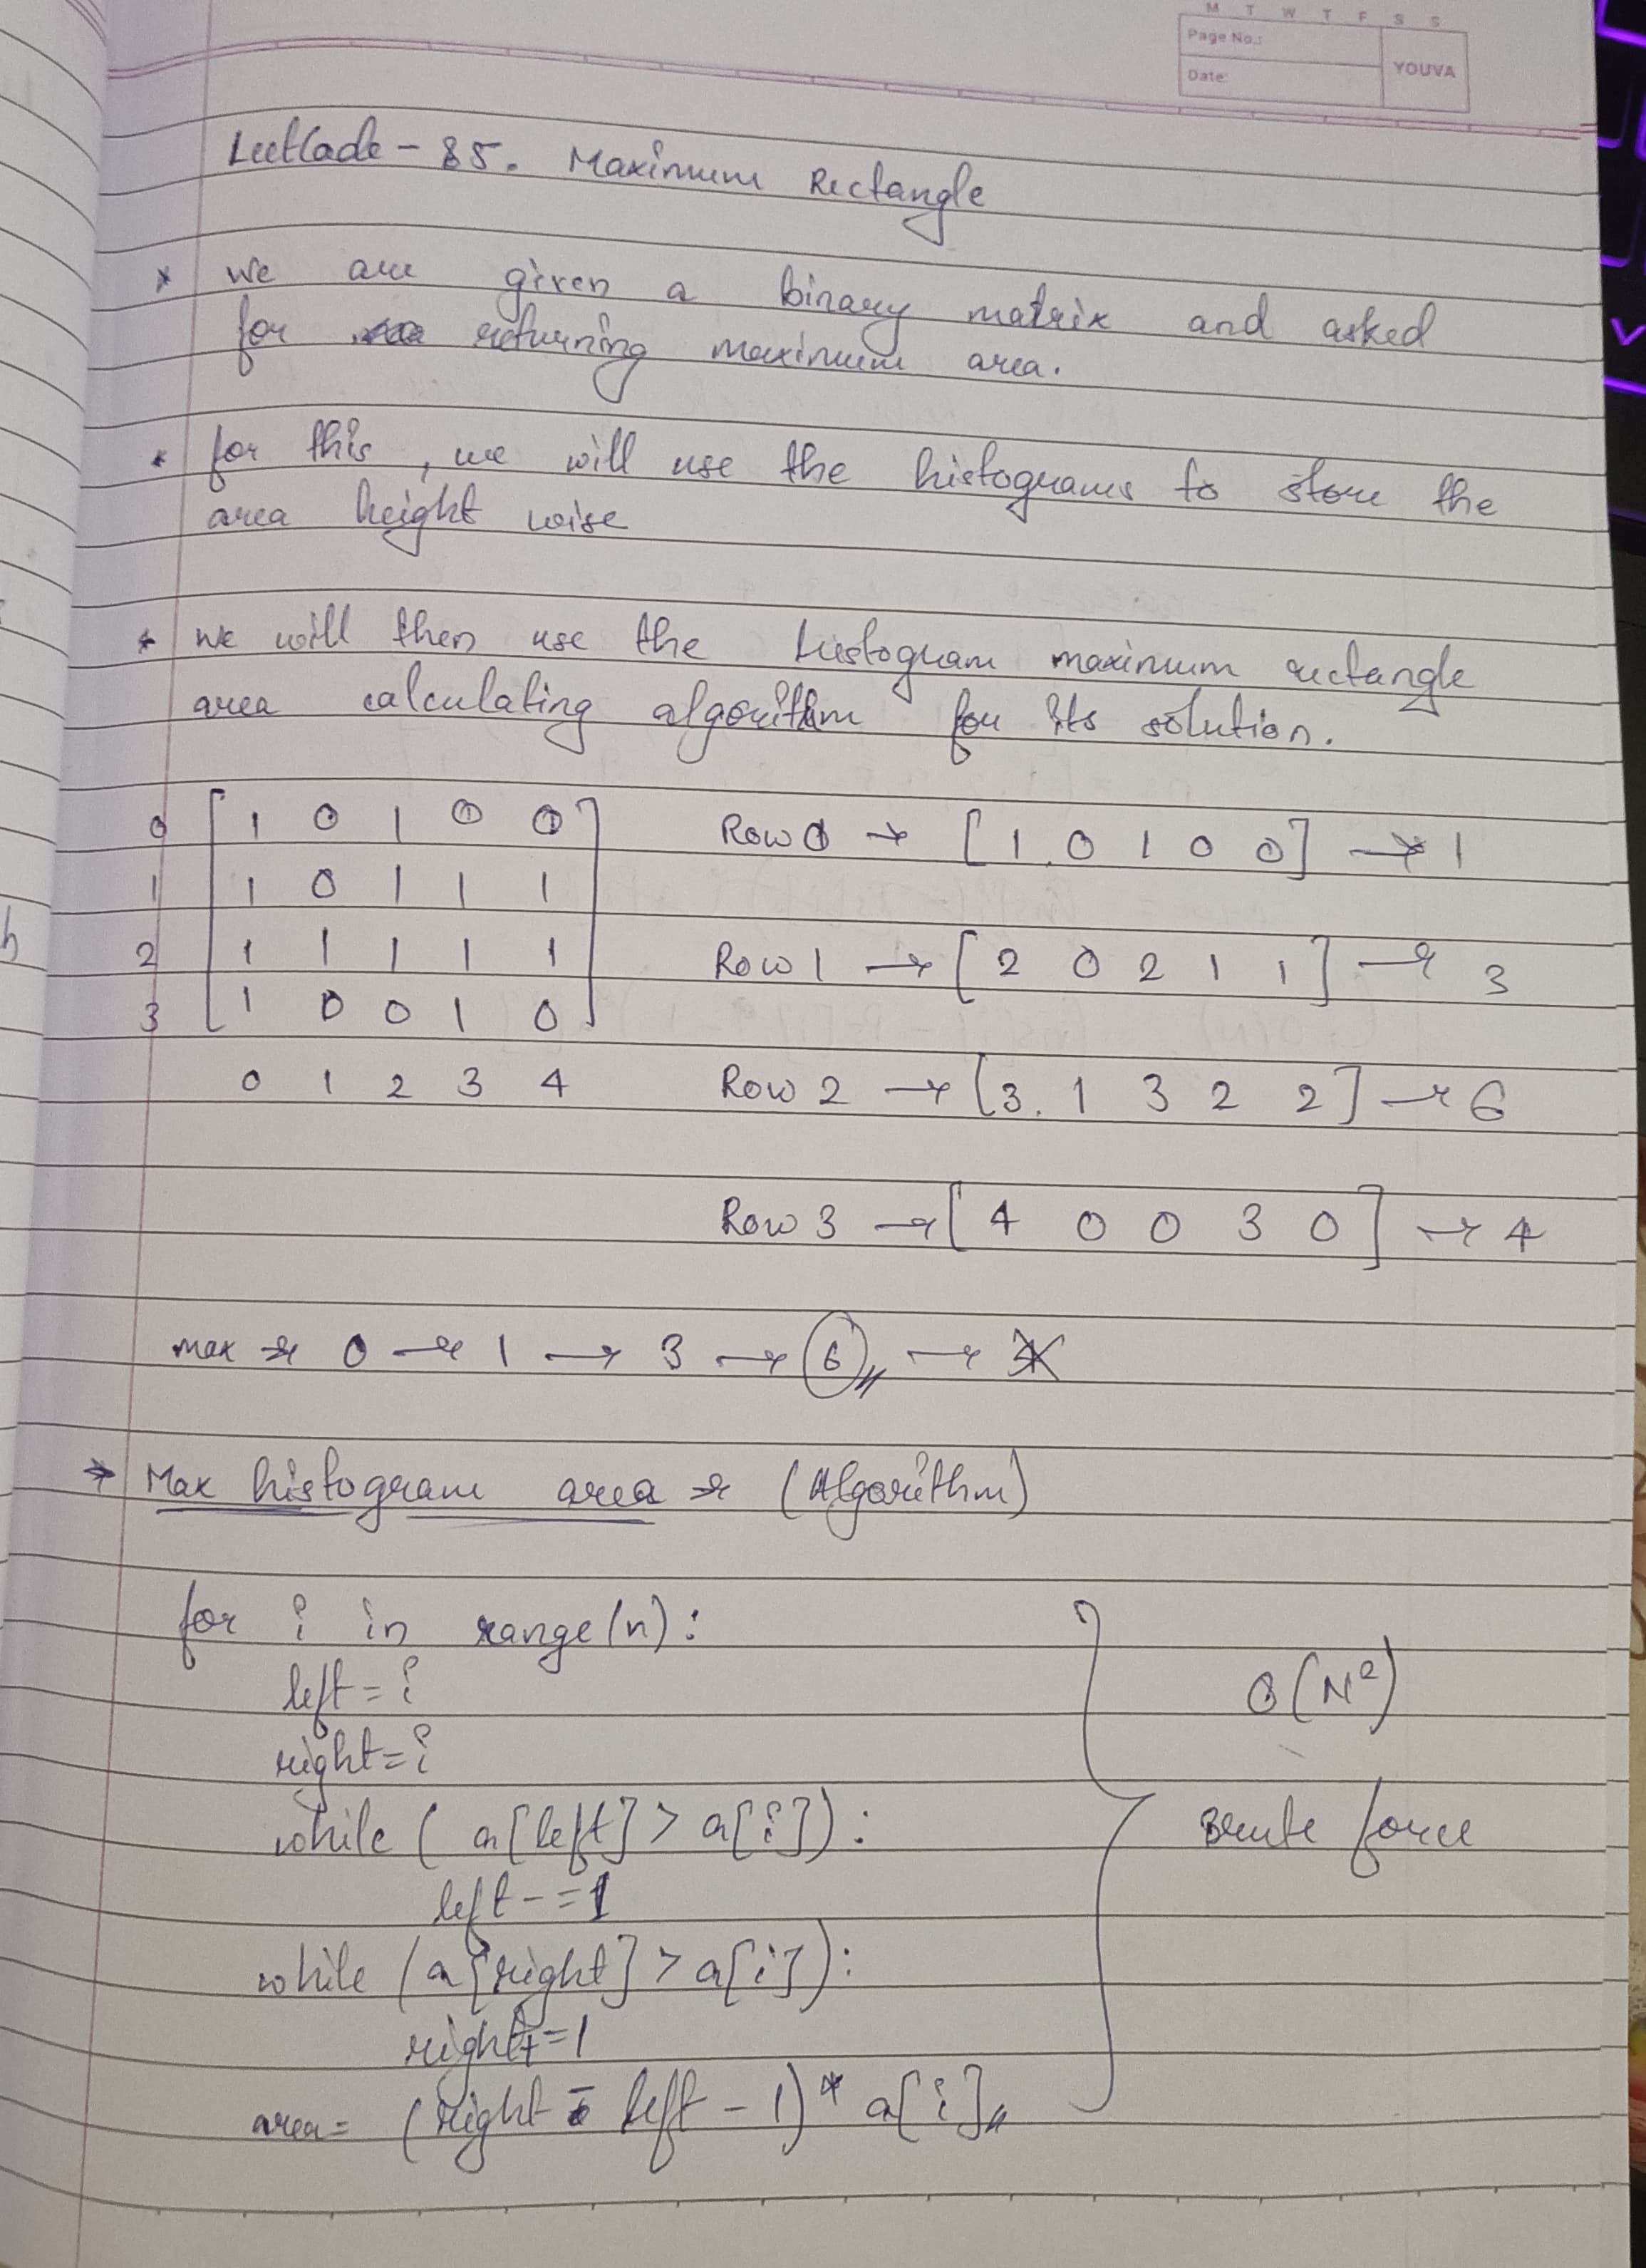 M T W T F S S
Page No.:
Date:
YOUVA
LeetCode - 85. Maximum Rectangle
* we are given a binary matrix and asked
for returning maximum area.
* for this, we will use the histograms to store the
area height wise
* we will then use the histogram maximum rectangle
area calculating algorithm for its solution.
0 [ 1 0 1 0 0 ] Row 0 → [ 1 0 1 0 0 ] → 1
1 1 0 1 1 1
2 1 1 1 1 1 Row 1 → [ 2 0 2 1 1 ] → 3
3 1 0 0 1 0
0 1 2 3 4 Row 2 → [ 3 1 3 2 2 ] → 6
Row 3 → [ 4 0 0 3 0 ] → 4
max → 0 → 1 → 3 → 6 → 4
→ Max histogram area → (Algorithm)
for i in range(n):
left = i
right = i
while ( a[left] > a[i]):
left -= 1
while (a[right] > a[i]):
right += 1
area = (right - left - 1) * a[i]
O(N²)
Brute force